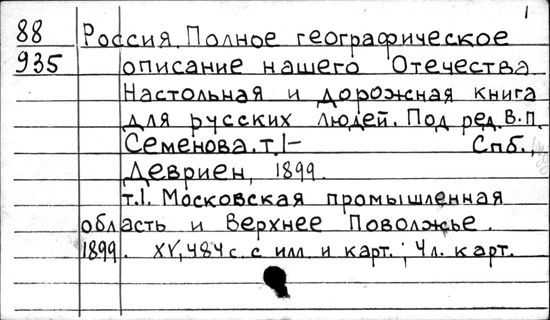 1
88 Россия. Полное географическое
935 описание нашего Отечества
Настольная и дорожная книга
для русских людей. Под ред. В.П.
Семенова. т.1- Спб.,
Девриен, 1899.
т.1. Московская промышленная
область и Верхнее Поволжье.
1899. XV, 484 с. с илл. и карт.; 4л. карт.